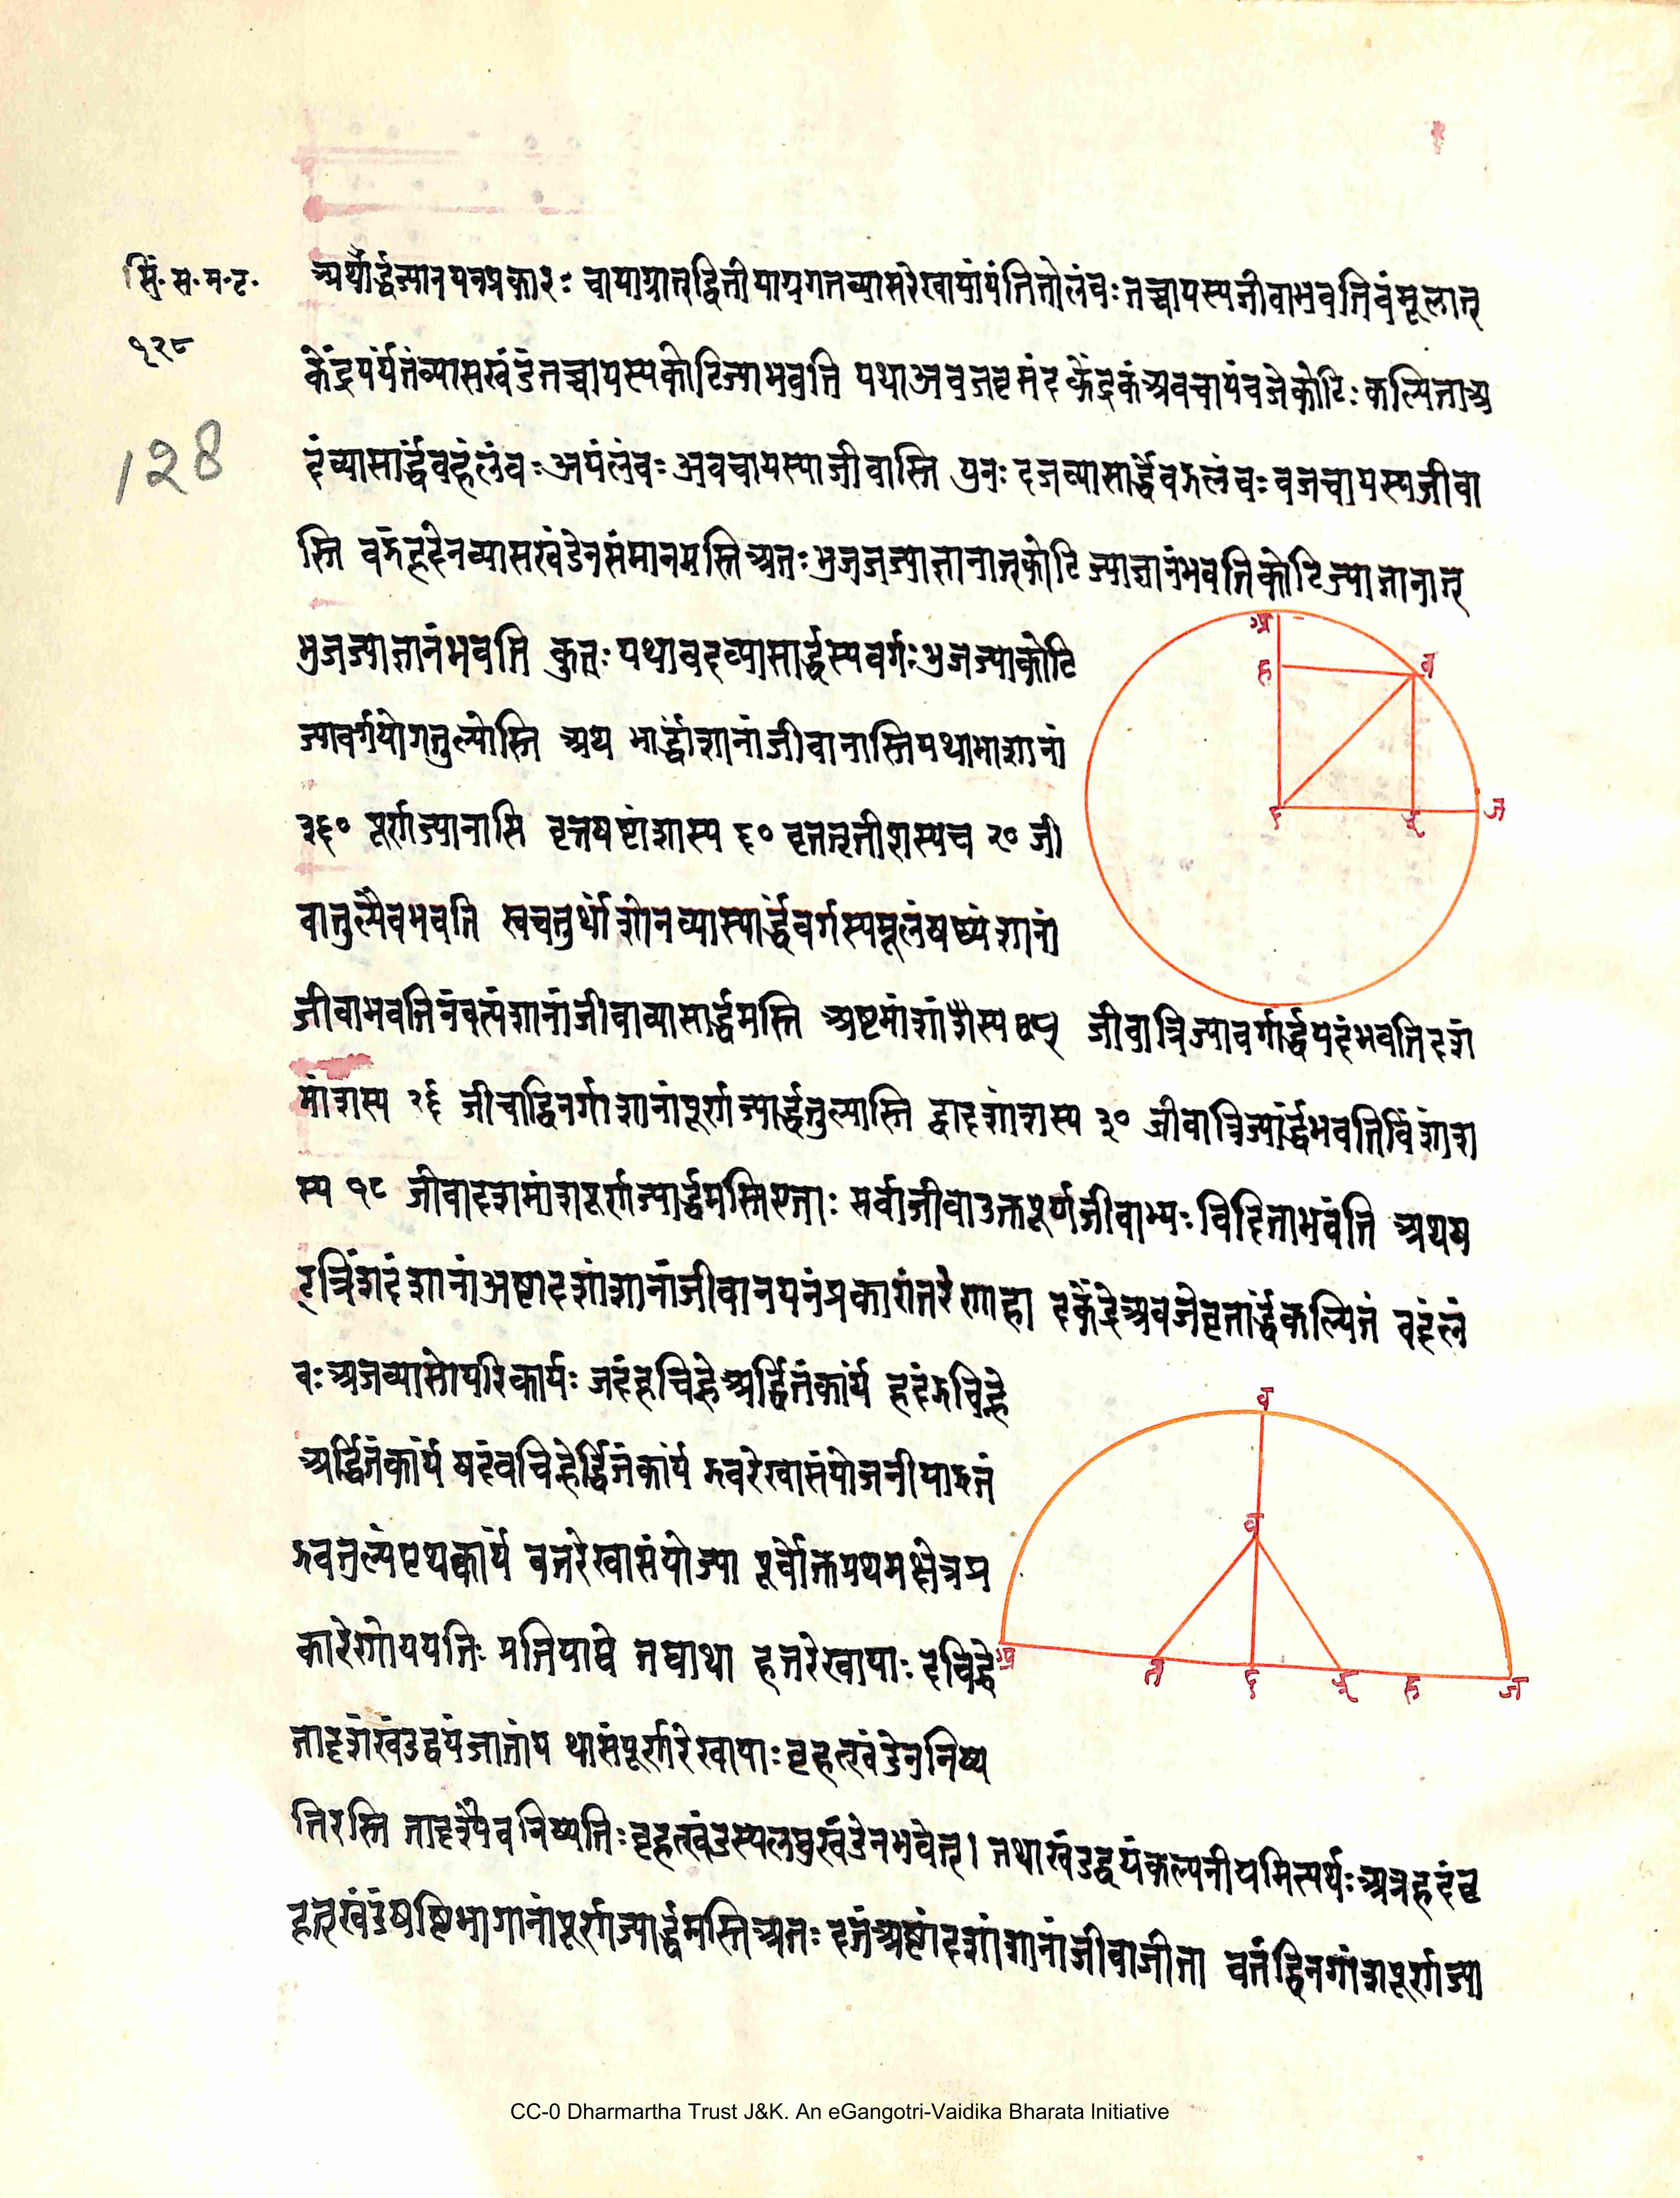 सिं॰ स॰ म॰ ट॰
१२८
128
अथार्द्धज्यानयनप्रकारः चापाग्रात्द्वितीयाग्रगतव्यासरेखायांपंतितोलंवः तच्चापस्यजीवाभवतिवंमूलात्
केंद्रपर्यंतंव्यासखंडंतच्चापस्यकोटिज्याभवति यथाअवजवृमंद केंद्रकंअवचापंवजेकोटिः कल्पिताअ
दंव्यासार्द्धंवहंलंवः अयंलंवः अवचापस्यजीवास्ति पुनः दजव्यासार्द्धेवझलंवः वजचापस्यजीवा
स्ति वझंहदेनव्यासखंडेनसंमानमस्तिअतः भुजजज्याज्ञानात्कोटिज्याज्ञानंभवतिकोटिज्याज्ञानात्
भुजज्याज्ञानंभवति कुतः यथावदव्यासार्द्धस्यवर्गः भुजज्याकोटि
ज्यावर्गयोगतुल्योस्ति अथ भार्द्धांशानांजीवानास्तियथाभांशानां
३६० पूर्णज्यानासि वृत्तषष्टांशस्य ६० वृततृतीशस्यच २० जी
वातुल्यैवभवति स्वचतुर्थांशोनव्यास्यार्द्धवर्गस्यमूलंषष्ट्यंशानां
जीवाभवतिनंवत्यंशानांजीवाव्यासार्द्धमस्ति अष्टमांशांशैस्य ४५ जीवात्रिज्यावर्गार्द्धपदंभवतिदश
मांशस्य २६ जीवाद्विनगांशानांपूर्णज्यार्द्धतुल्यास्ति द्वादशांशस्य ३० जीवात्रिज्यार्द्धंभवतिविंशांश
स्य १८ जीवादशमांशपूर्णज्यार्द्धमस्तिएताः सर्वाजीवाउक्तपूर्णजीवाभ्यः विदिताभवंति अथष
ट्त्रिंशदंशानांअष्टादशांशानांजीवानयनंप्रकारांतरेणाहा दकेंद्रेअवजेवृतार्द्धंकल्पितं वदंलं
वः अजव्यासोपरिकार्यः जदंहचिह्नेअर्द्धितंकार्यं हदंझचिह्ने
अर्द्धितंकार्यं षदंवचिह्नेर्द्धितंकार्यं झवरेखासंयोजनीयाझतं
झवतुल्यंपृथक्कार्यं वतरेखासंयोज्या पूर्वोक्तप्रथमक्षेत्रप्र
कारेणोपपतिः प्रतिपाद्ये तद्यथा हतरेखायाः देचिह्ने
तादृशंखंडद्वयंजातंय थासंपूर्णरेखायाः वृहत्खंडेननिष्प
तिरस्ति तादृश्यैवनिष्पतिः वृहत्खंडस्यलघुखंडेनभवेत्। तथाखंडद्वयंकल्पनीयमित्यर्थः अत्रहदंवृ
हत्खंडंषष्टिभागानांपूर्णज्यार्द्धमस्तिअतः दतंअष्टांदशांशानांजीवाजीता वतंद्विनगांशपूर्णज्या
अ
ह
व
द
झ
ज
व
व
अ
त
द
झ
ह
ज
CC-0 Dharmartha Trust J&K. An eGangotri-Vaidika Bharata Initiative